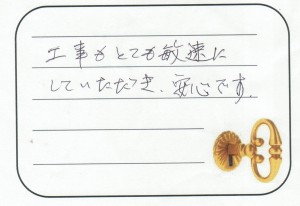 工事もとても敏速に
していただき、安心です。